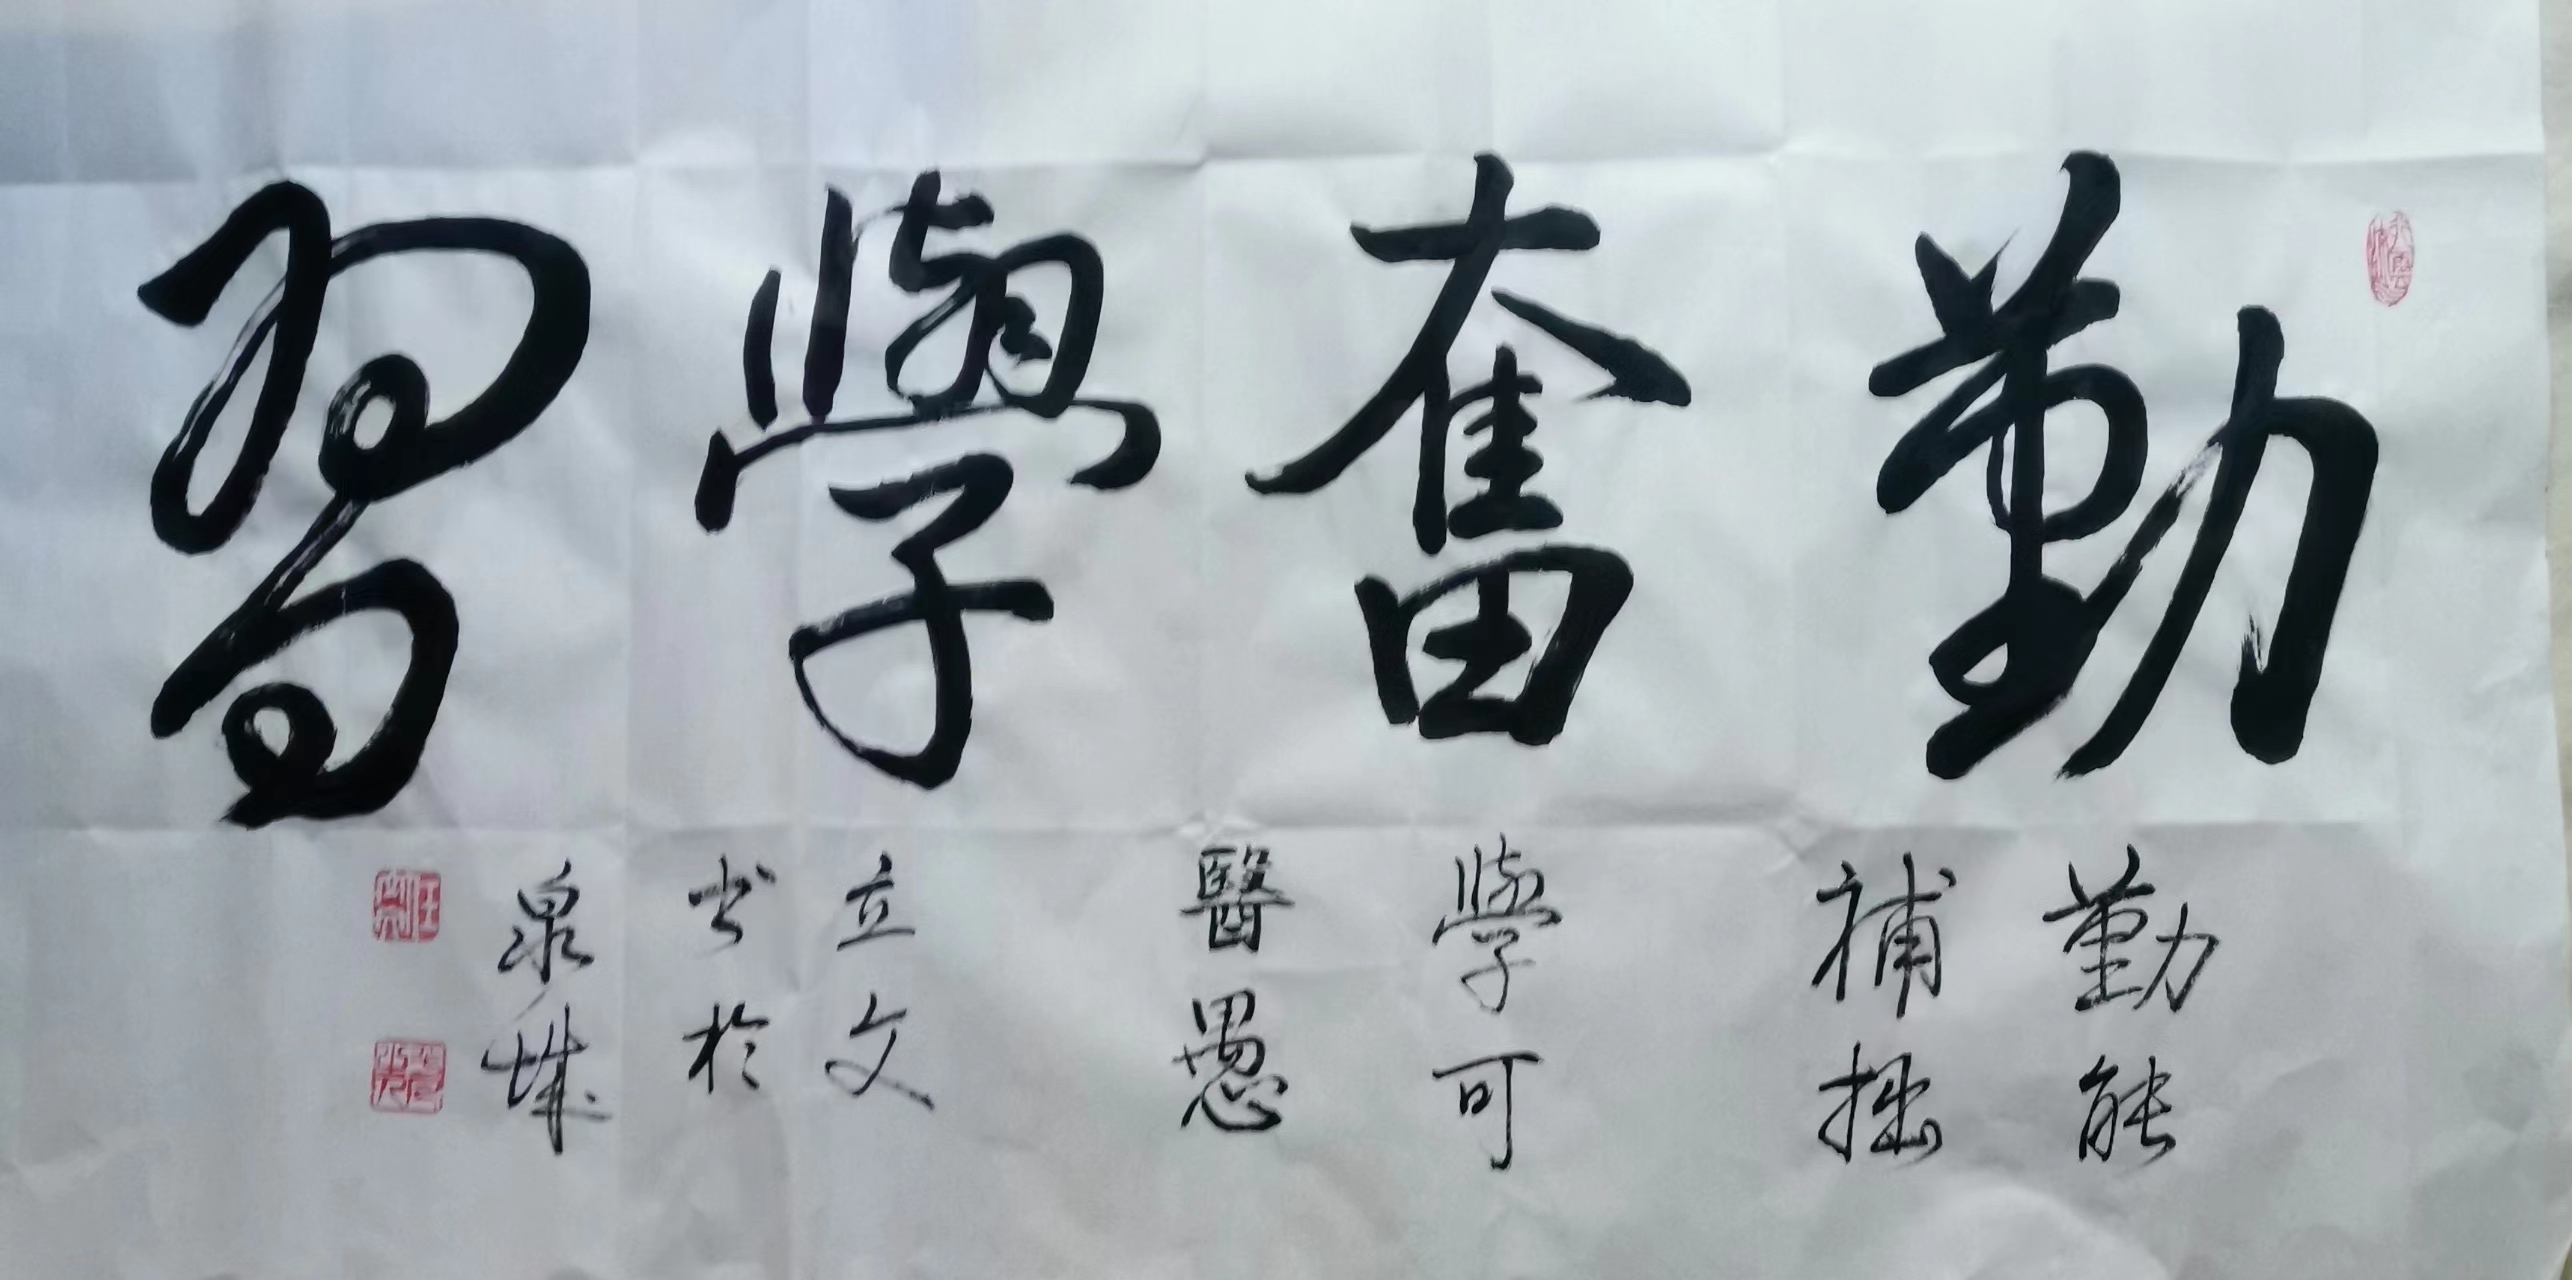 勤奮學習
勤能
補拙
學可
醫愚
立文
书於
泉城